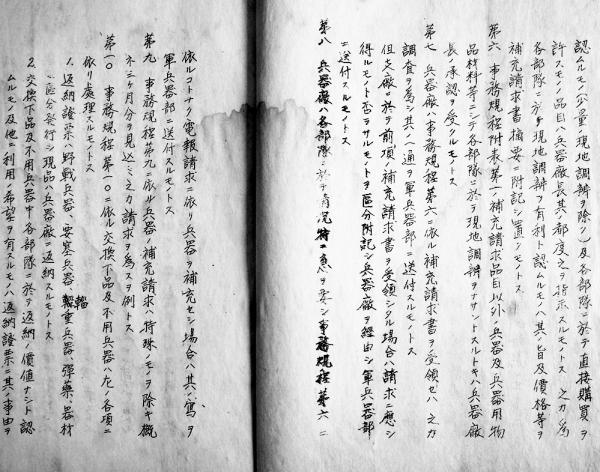 認ムルモノ少量ノ現地調辨ヲ除ク)及各部隊ニ於テ直接購買ヲ
許スモノノ品目ハ兵器廠長其ノ都度之ヲ指示スルモノトス 之カ為
各部隊ニ於テ現地調辨ヲ有利ト認ムルモノハ其ノ旨及價格等ヲ
補充請求書摘要ニ附記シ置クモノトス
第六 事務規程附表第一補充請求品目以外ノ兵器及兵器用物
品材料等ニシテ各部隊ニ於テ現地調辨ヲナサントスルトキハ兵器廠
長ノ承認ヲ受クルモノトス
第七 兵器廠ハ事務規程第六ニ依ル補充請求書ヲ受領セハ之カ
調査ヲ為シ其ノ一通ヲ軍兵器部ニ送付スルモノトス
但支廠ニ於テ前項ノ補充請求書ヲ受領シタル場合ハ請求ニ應シ
得ルモノト否ラサルモノトヲ区分附記シ兵器廠ヲ経由シ軍兵器部
ニ送付スルモノトス
第八 兵器廠ハ各部隊ニ於テ情况特ニ急ヲ要シ事務規程第六ニ
依ルコトナク電報請求ニ依リ兵器ヲ補充セシ場合ハ其ノ寫ヲ
軍兵器部ニ送付スルモノトス
第九 事務規程第九ニ依ル兵器ノ補充請求ハ特殊ノモノヲ除キ概
ネ三ヶ月分ヲ見込ミ之カ請求ヲ為スヲ例トス
第一〇 事務規程第一〇ニ依ル交換下品及不用兵器ハ左ノ各項ニ
依リ處理スルモノトス
1、返納證票ハ野戰兵器、要塞兵器、輜重兵器、彈藥、器材
ニ区分発行シ現品ハ兵器廠ニ返納スルモノトス
2、交換下品及不用兵器中各部隊ニ於テ返納ノ價値ナシト認
ムルモノ及他ニ利用ノ希望ヲ有スルモノハ返納證票ニ其ノ事由ヲ